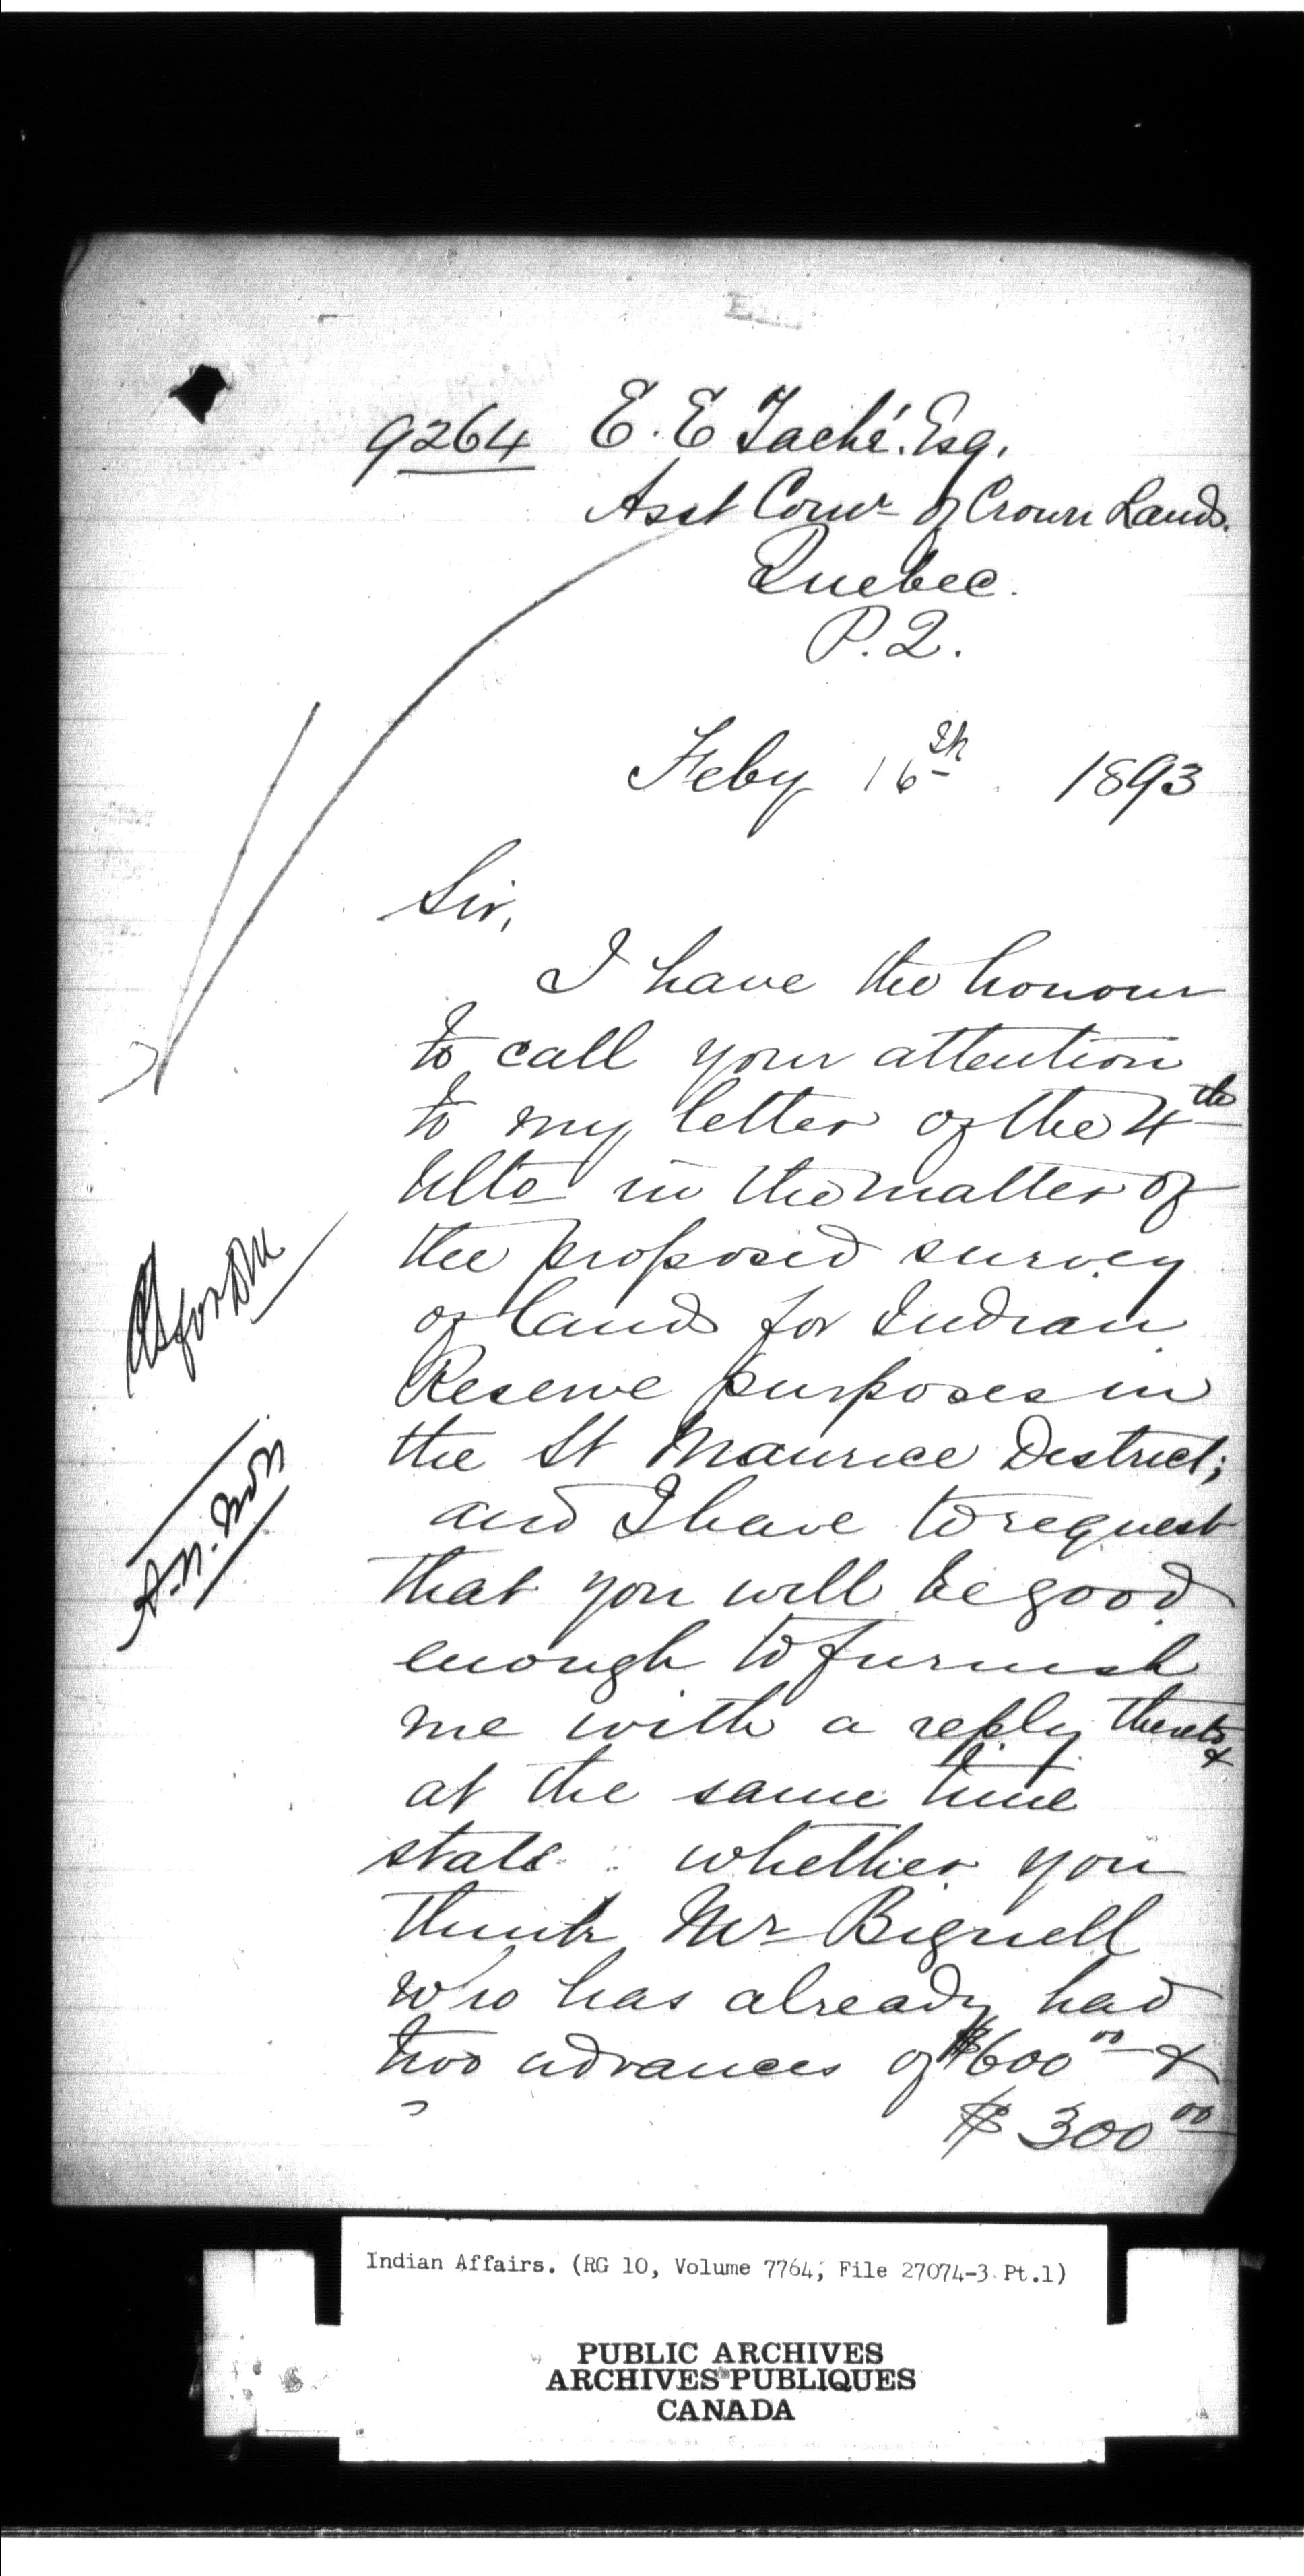 9264 E. E Taché. Esq.
Asst Comr of Crown Lands.
Quebec.
P.Q.
Feby 16th 1893
Sir,
I have the honour
to call your attention
to my letter of the 4th
Ulto in the matter of
the proposed survey
of lands for Indian
Reserve purposes in
the St Maurice District;
and I have to request
that you will be good
enough to furnish
me with a reply thereto
&
at the same time
state whether you
think Mr Bignell
who has already had
two advances of $600 00 &
$300 00
Indian Affairs. (RG 10, Volume 7764, File 27074-3 Pt.1)
PUBLIC ARCHIVES
ARCHIVES PUBLIQUES
CANADA